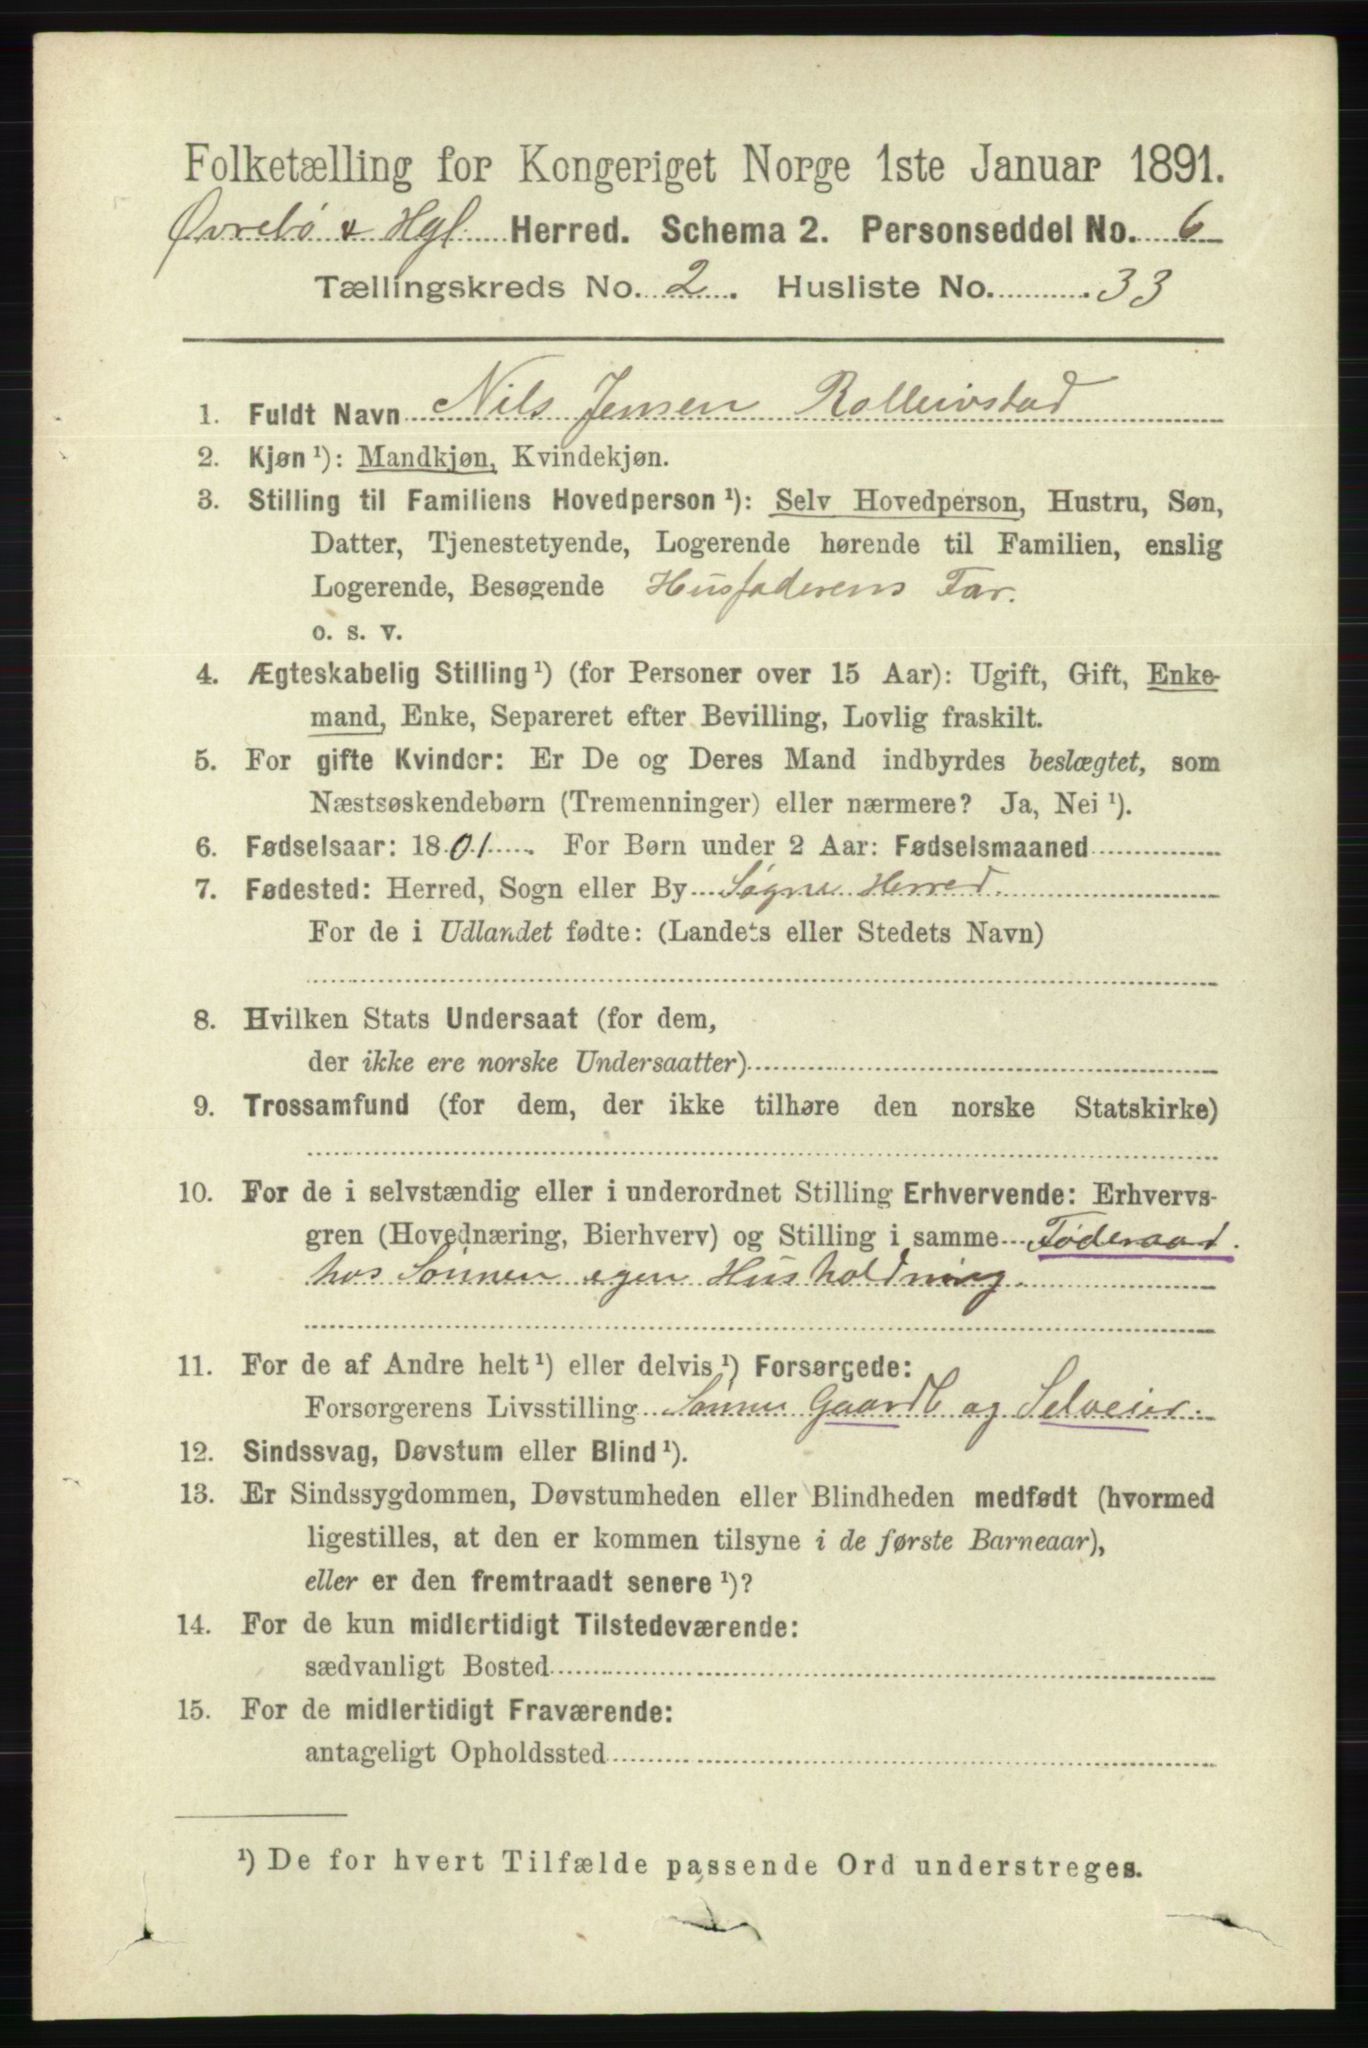 Folketælling for Kongeriget Norge 1ste Januar 1891.
Øvrebö & Hgl. Herred. Schema 2. Personseddel No. 6
Tællingskreds No. 2. Husliste No. 33
1. Fuldt Navn Nils Jensen Rolleivstad
2. Kjøn ¹): Mandkjøn, Kvindekjøn.
3. Stilling til Familiens Hovedperson ¹): Selv Hovedperson, Hustru, Søn,
Datter, Tjenestetyende, Logerende hørende til Familien, enslig
Logerende, Besøgende Husfaderens Far.
o. s. v.
4. Ægteskabelig Stilling ¹) (for Personer over 15 Aar): Ugift, Gift, Enke-
mand, Enke, Separeret efter Bevilling, Lovlig fraskilt.
5. For gifte Kvinder: Er De og Deres Mand indbyrdes beslægtet, som
Næstsøskendebørn (Tremenninger) eller nærmere? Ja, Nei ¹).
6. Fødselsaar: 1801. For Børn under 2 Aar: Fødselsmaaned
7. Fødested: Herred, Sogn eller By Søgne Herred.
For de i Udlandet fødte: (Landets eller Stedets Navn)
8. Hvilken Stats Undersaat (for dem,
der ikke ere norske Undersaatter)
9. Trossamfund (for dem, der ikke tilhøre den norske Statskirke)
10. For de i selvstændig eller i underordnet Stilling Erhvervende: Erhvervs-
gren (Hovednæring, Bierhverv) og Stilling i samme Föderaad.
hos Sönnen egen Husholdning.
11. For de af Andre helt ¹) eller delvis ¹) Forsørgede:
Forsørgerens Livsstilling Sönnen Gaardb og Selveier.
12. Sindssvag, Døvstum eller Blind ¹).
13. Er Sindssygdommen, Døvstumheden eller Blindheden medfødt (hvormed
ligestilles, at den er kommen tilsyne i de første Barneaar),
eller er den fremtraadt senere ¹)?
14. For de kun midlertidigt Tilstedeværende:
sædvanligt Bosted
15. For de midlertidigt Fraværende:
antageligt Opholdssted
¹) De for hvert Tilfælde passende Ord understreges.